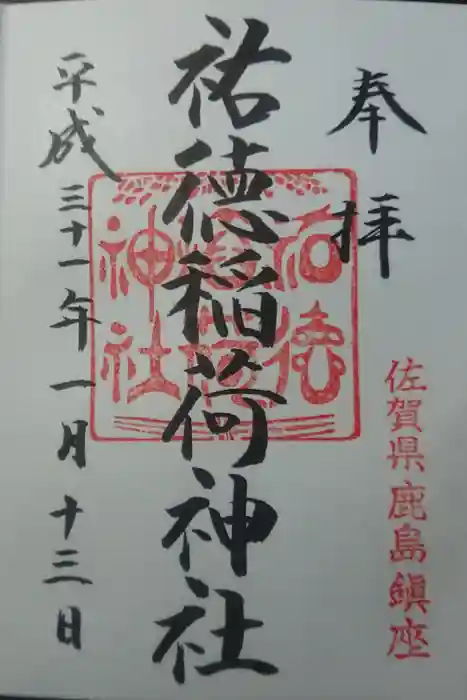 奉拝
佐賀県鹿島鎮座
祐徳稲荷神社
祐徳稲荷神社
平成三十一年一月十三日